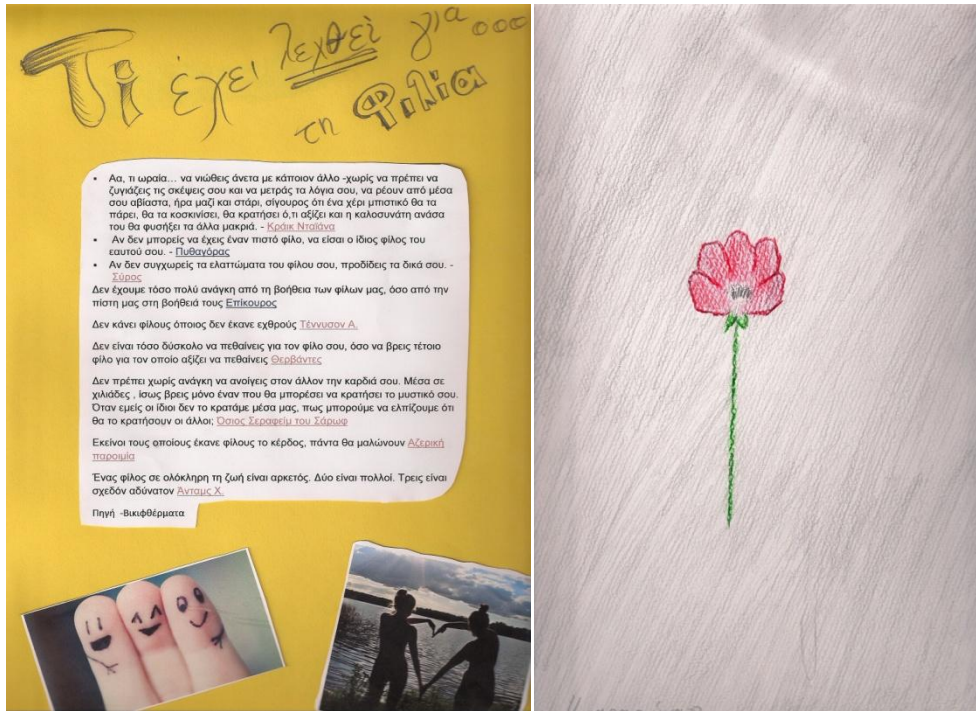 Τι έχει λεχθεί για...
τη Φιλία
• Αα, τι ωραία… να νιώθεις άνετα με κάποιον άλλο -χωρίς να πρέπει να
ζυγιάζεις τις σκέψεις σου και να μετράς τα λόγια σου, να ρέουν από μέσα
σου αβίαστα, ήρα μαζί και στάρι, σίγουρος ότι ένα χέρι μπιστικό θα τα
πάρει, θα τα κοσκινίσει, θα κρατήσει ό,τι αξίζει και η καλοσυνάτη ανάσα
του θα φυσήξει τα άλλα μακριά. - Κράικ Νταϊάνα
• Αν δεν μπορείς να έχεις έναν πιστό φίλο, να είσαι ο ίδιος φίλος του
εαυτού σου. - Πυθαγόρας
• Αν δεν συγχωρείς τα ελαττώματα του φίλου σου, προδίδεις τα δικά σου. -
Σύρος
Δεν έχουμε τόσο πολύ ανάγκη από τη βοήθεια των φίλων μας, όσο από την
πίστη μας στη βοήθειά τους Επίκουρος
Δεν κάνει φίλους όποιος δεν έκανε εχθρούς Τέννυσον Α.
Δεν είναι τόσο δύσκολο να πεθαίνεις για τον φίλο σου, όσο να βρεις τέτοιο
φίλο για τον οποίο αξίζει να πεθαίνεις Θερβάντες
Δεν πρέπει χωρίς ανάγκη να ανοίγεις στον άλλον την καρδιά σου. Μέσα σε
χιλιάδες , ίσως βρεις μόνο έναν που θα μπορέσει να κρατήσει το μυστικό σου.
Όταν εμείς οι ίδιοι δεν το κρατάμε μέσα μας, πως μπορούμε να ελπίζουμε ότι
θα το κρατήσουν οι άλλοι; Όσιος Σεραφείμ του Σάρωφ
Εκείνοι τους οποίους έκανε φίλους το κέρδος, πάντα θα μαλώνουν Αζερική
παροιμία
Ένας φίλος σε ολόκληρη τη ζωή είναι αρκετός. Δύο είναι πολλοί. Τρεις είναι
σχεδόν αδύνατον Άνταμς Χ.
Πηγή -Βικιφθέρματα